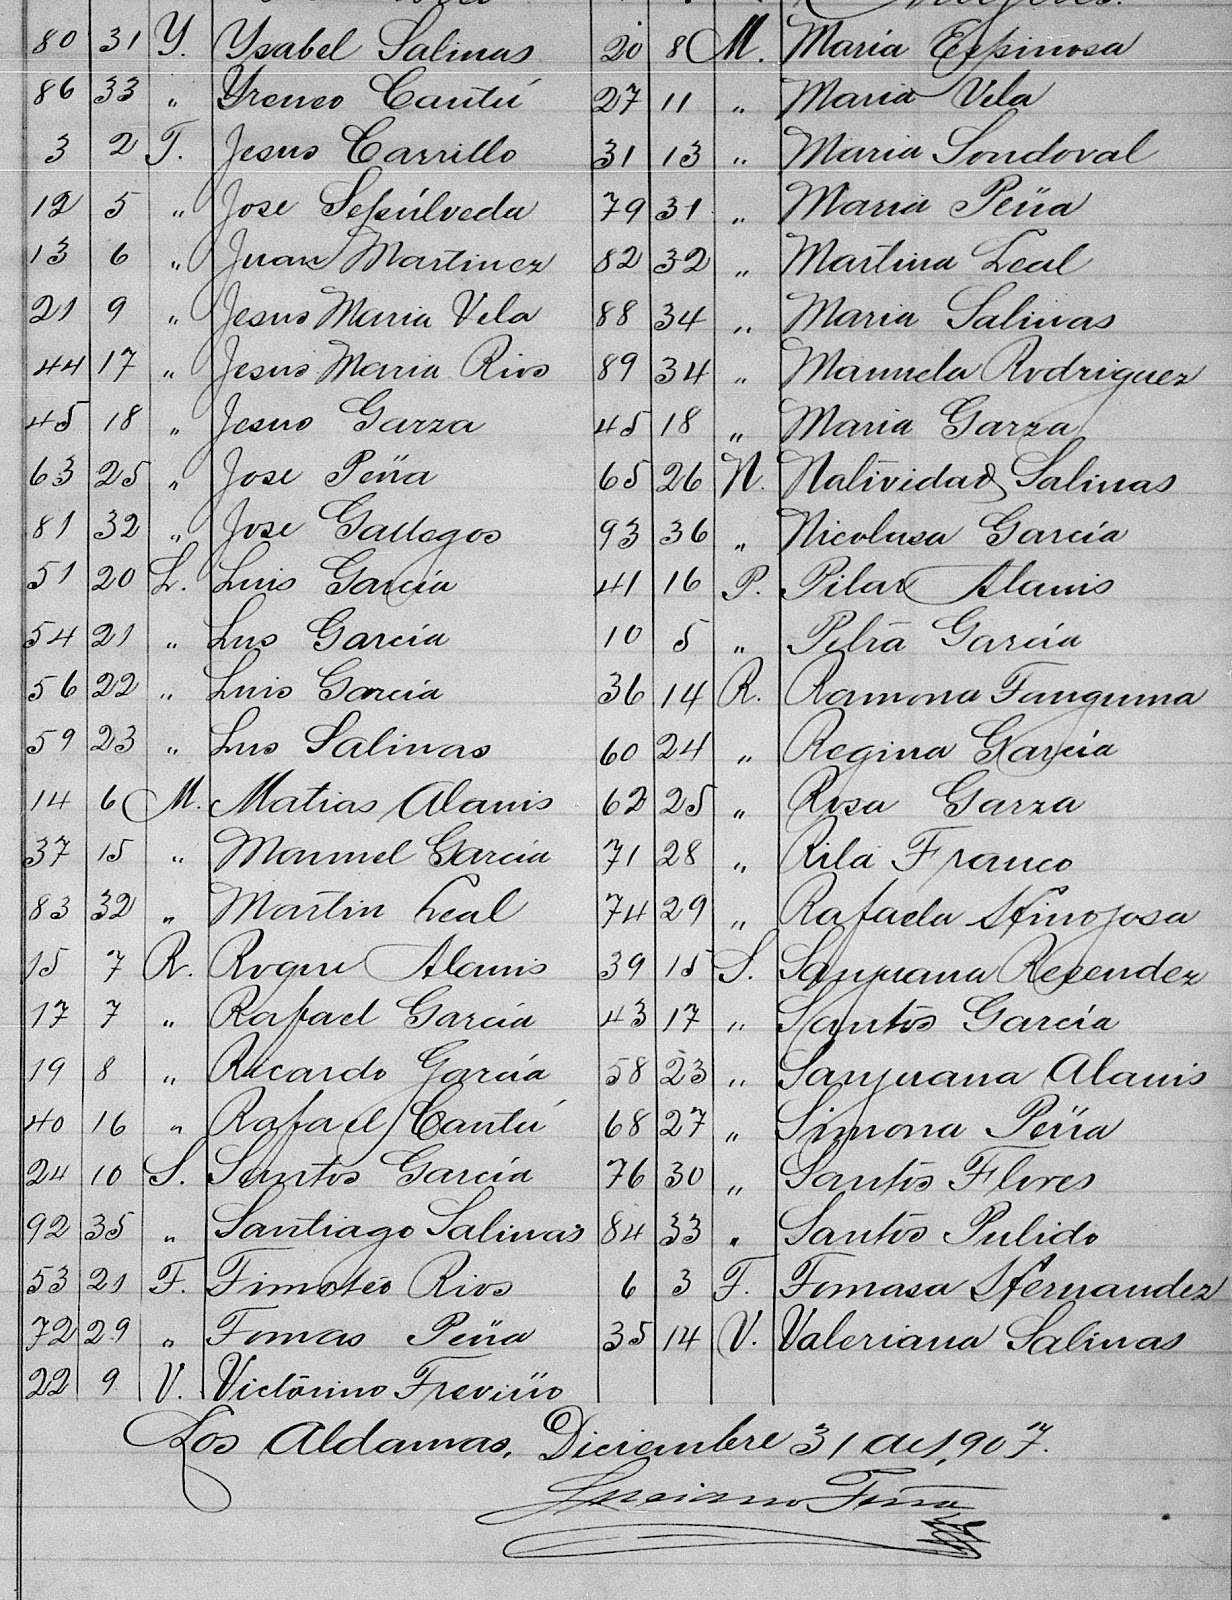 80 31 Y. Ysabel Salinas 20 8 M. Maria Espinosa
86 33 " Yreneo Cantú 27 11 " Maria Vela
3 2 J. Jesus Carrillo 31 13 " Maria Sondoval
12 5 " Jose Sepúlveda 79 31 " Maria Peña
13 6 " Juan Martinez 82 32 " Martina Leal
21 9 " Jesus Maria Vela 88 34 " Maria Salinas
44 17 " Jesus Maria Rios 89 34 " Manuela Rodriguez
45 18 " Jesus Garza 45 18 " Maria Garza
63 25 " Jose Peña 65 26 N. Natividad Salinas
81 32 " Jose Gallegos 93 36 " Nicolasa García
51 20 L. Luis García 41 16 P. Pilar Alanis
54 21 " Lus García 10 5 " Petra García
56 22 " Luis García 36 14 R. Ramona Tanguma
59 23 " Lus Salinas 60 24 " Regina García
14 6 M. Matias Alanis 62 25 " Rosa Garza
37 15 " Manuel García 71 28 " Rita Franco
83 32 " Martin Leal 74 29 " Rafaela Hinojosa
15 7 R. Roque Alanis 39 15 S. Sanjuana Resendez
17 7 " Rafael García 43 17 " Santos García
19 8 " Ricardo García 58 23 " Sanjuana Alanis
40 16 " Rafael Cantú 68 27 " Simona Peña
24 10 S. Santos García 76 30 " Santos Flores
92 35 " Santiago Salinas 84 33 " Santos Pulido
53 21 T. Timoteo Rios 6 3 T. Tomasa Hernandez
72 29 " Tomas Peña 35 14 V. Valeriana Salinas
22 9 V. Victorino Treviño
Los Aldamas, Diciembre 31 de 1,907.
Luciano